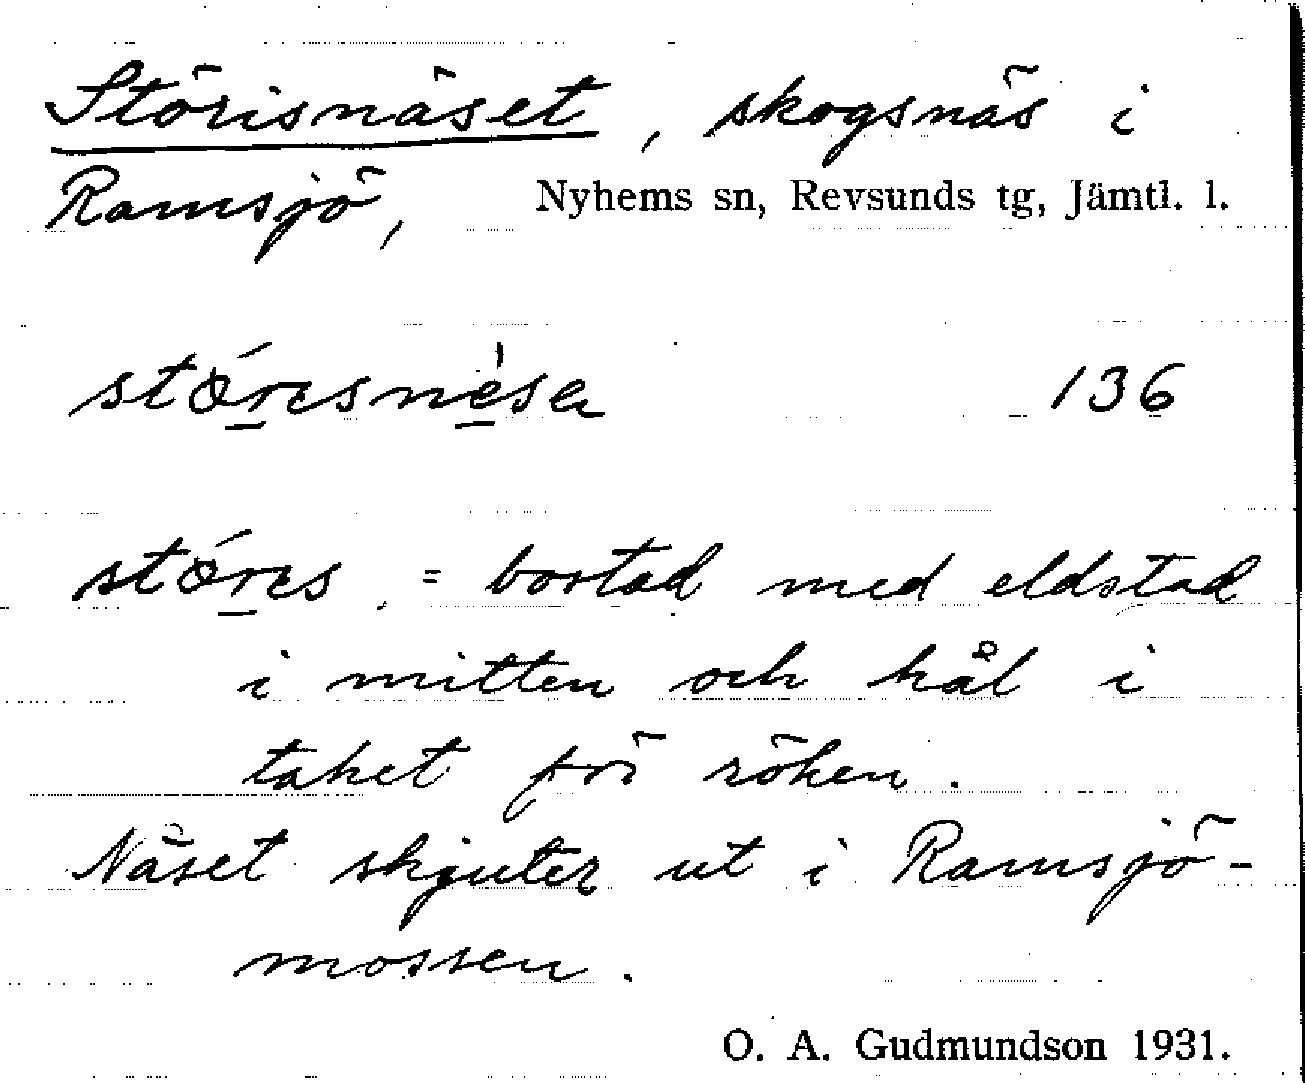 Störisnäset, skogsnäs i
Ramsjö, Nyhems sn, Revsunds tg, Jämtl. l.
stǿrisnèsa 136
stǿris = bostad med eldstad
i mitten och hål i
taket för röken.
Näset skjuter ut i Ramsjö-
mossen.
O. A. Gudmundson 1931.